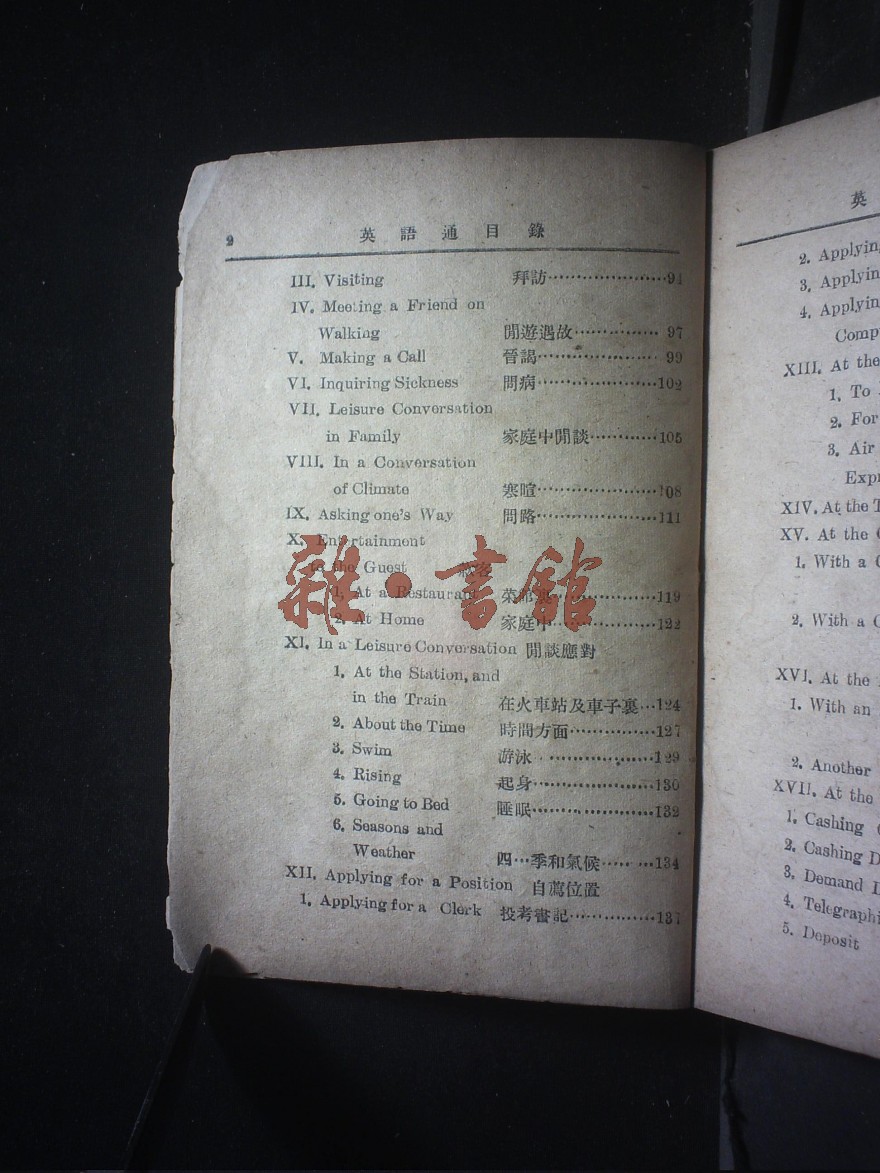 2 英語通目錄
III. Visiting 拜訪··················94
IV. Meeting a Friend on
Walking 閒遊遇故·············· 97
V. Making a Call 晉謁··················· 99
VI. Inquiring Sickness 問病···················102
VII. Leisure Conversation
in Family 家庭中閒談···········105
VIII. In a Conversation
of Climate 寒暄···················108
IX. Asking one's Way 問路···················111
X. Entertainment
to the Guest 款客
1. At a Restaurant 菜館···············119
2. At Home 家庭中················122
雜·書館
XI. In a Leisure Conversation 閒談應對
1. At the Station, and
in the Train 在火車站及車子裏···124
2. About the Time 時間方面··············127
3. Swim 游泳···················129
4. Rising 起身···················130
5. Going to Bed 睡眠···················132
6. Seasons and
Weather 四···季和氣候·········134
XII. Applying for a Position 自薦位置
1. Applying for a Clerk 投考書記··············137
英
2. Applying
3. Applying
4. Applying
XIII. At the
1. To
2. For
3. Air
XIV. At the
XV. At the
1. With a
2. With a
XVI. At the
1. With an
2. Another
XVII. At the
1. Cashing
2. Cashing
3. Demand
4.
5. Deposit